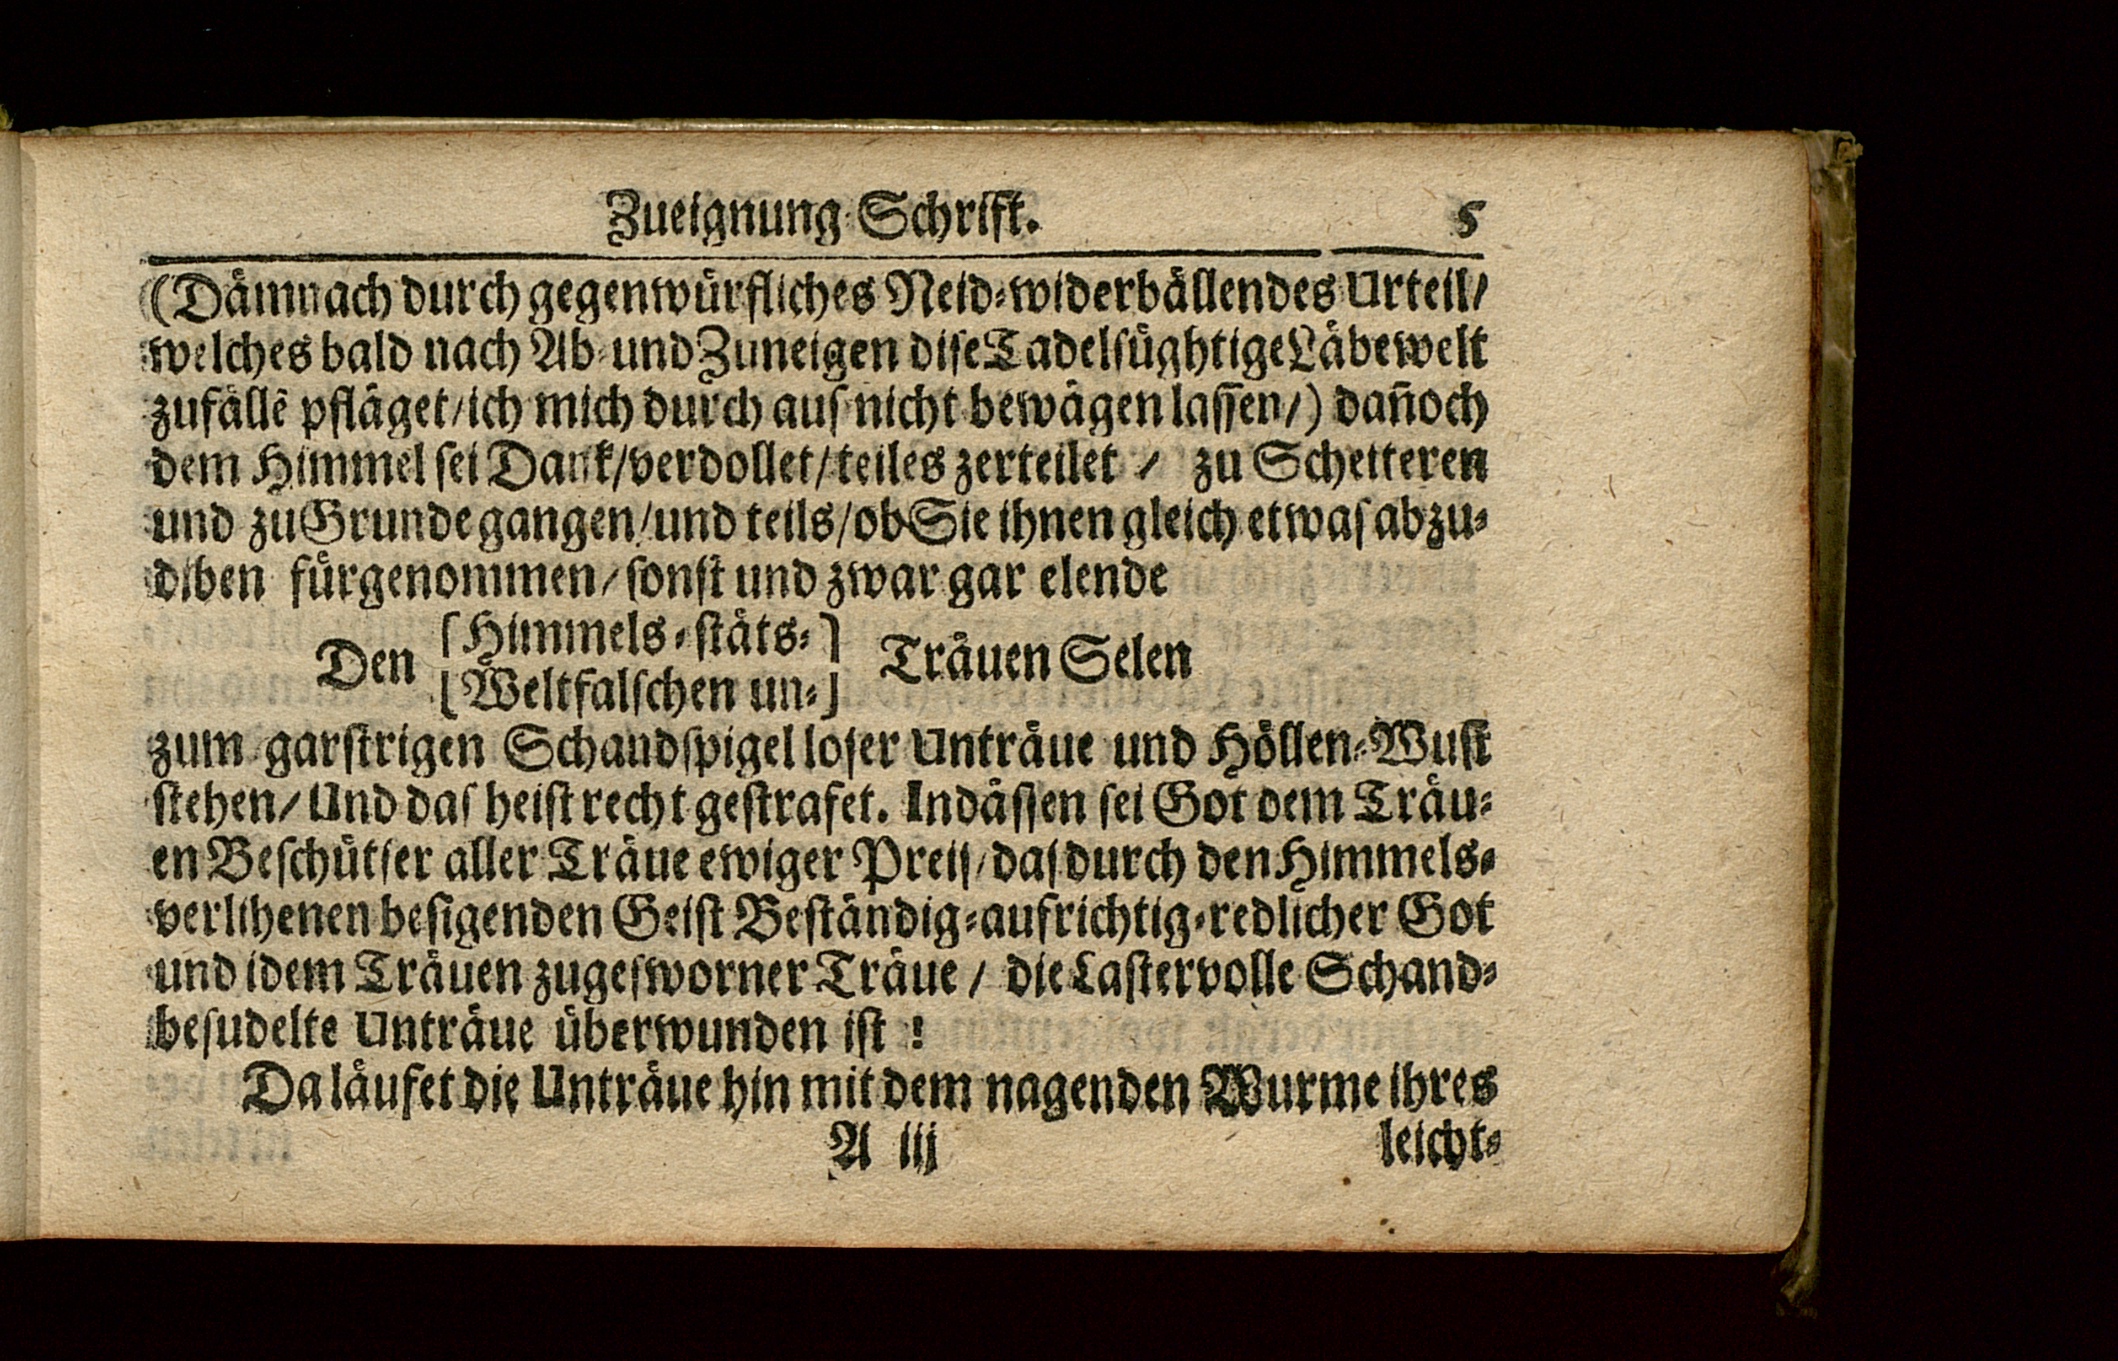 Zueignung Schrift. 5
(Dämnach durch gegenwürfliches Neid-widerbällendes Urteil/
welches bald nach Ab- und Zuneigen dise Tadelsüghtige Läbewelt
zufällẽ pfläget/ ich mich durch aus nicht bewägen lassen/) dan̄och
dem Himmel sei Dank/ verdollet/ teiles zerteilet / zu Scheiteren
und zu Grunde gangen/ und teils/ ob Sie ihnen gleich etwas abzu-
diben fürgenommen/ sonst und zwar gar elende
Den [Himmels-stäts-] Träuen Selen
[Weltfalschen un-]
zum garstrigen Schandspigel loser Unträue und Höllen-Wust
stehen/ Und das heist recht gestrafet. Indässen sei Got dem Träu-
en Beschütser aller Träue ewiger Preis/ das durch den Himmels-
verlihenen besigenden Geist Beständig-aufrichtig-redlicher Got
und idem Träuen zugesworner Träue / die Lastervolle Schand-
besudelte Unträue überwunden ist !
Da läufet die Unträue hin mit dem nagenden Wurme ihres
A iij leicht-